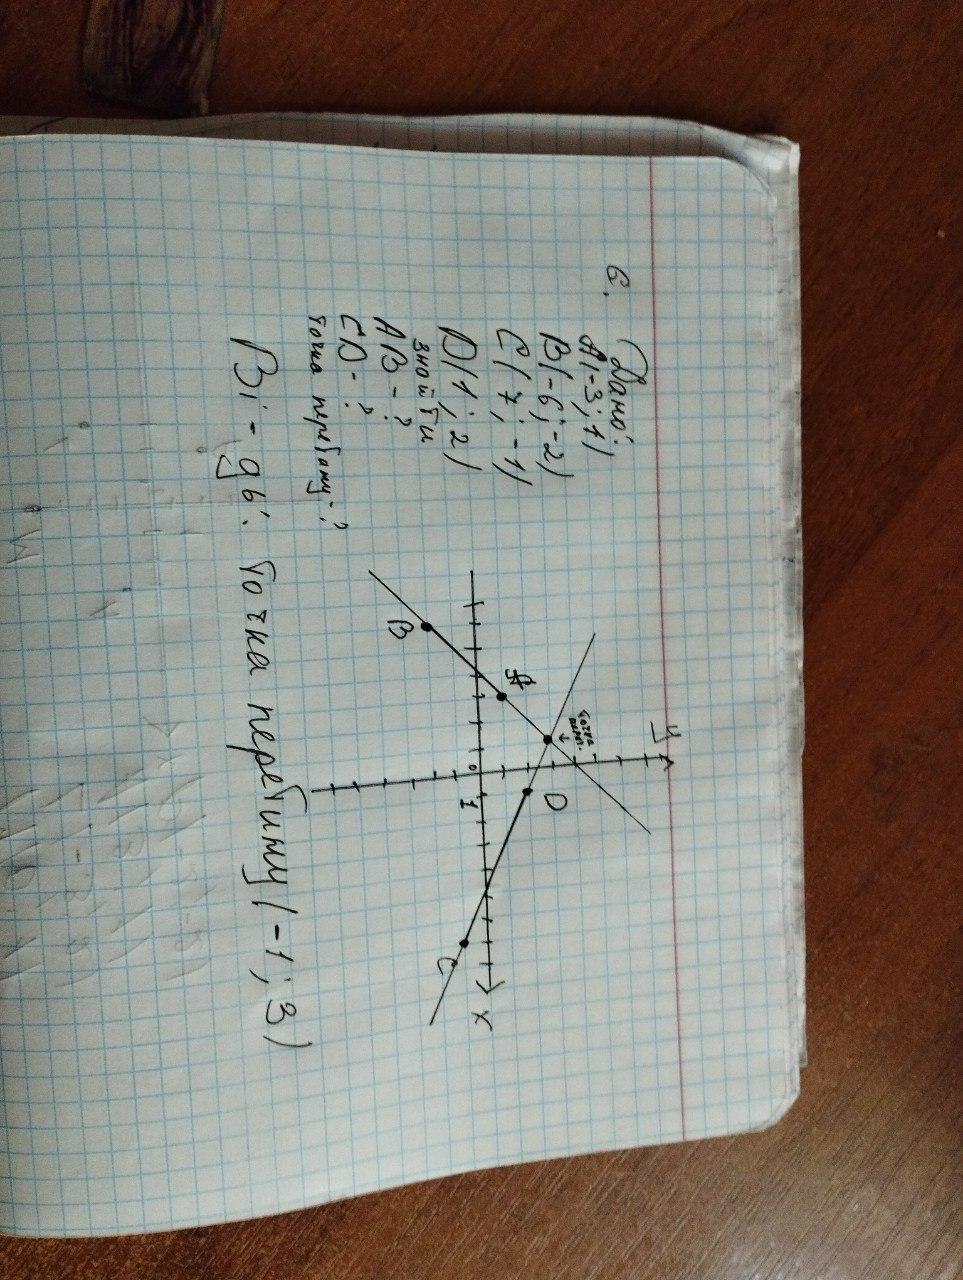 6. Дано:
A(-3; 1)
B(-6; -2)
C(7; -1)
D(1; 2)
знайти
AB - ?
CD - ?
точка перетину - ?
Y
точка
перет.
A
D
B
0
1
C
X
Від-дь: точка перетину (-1; 3)